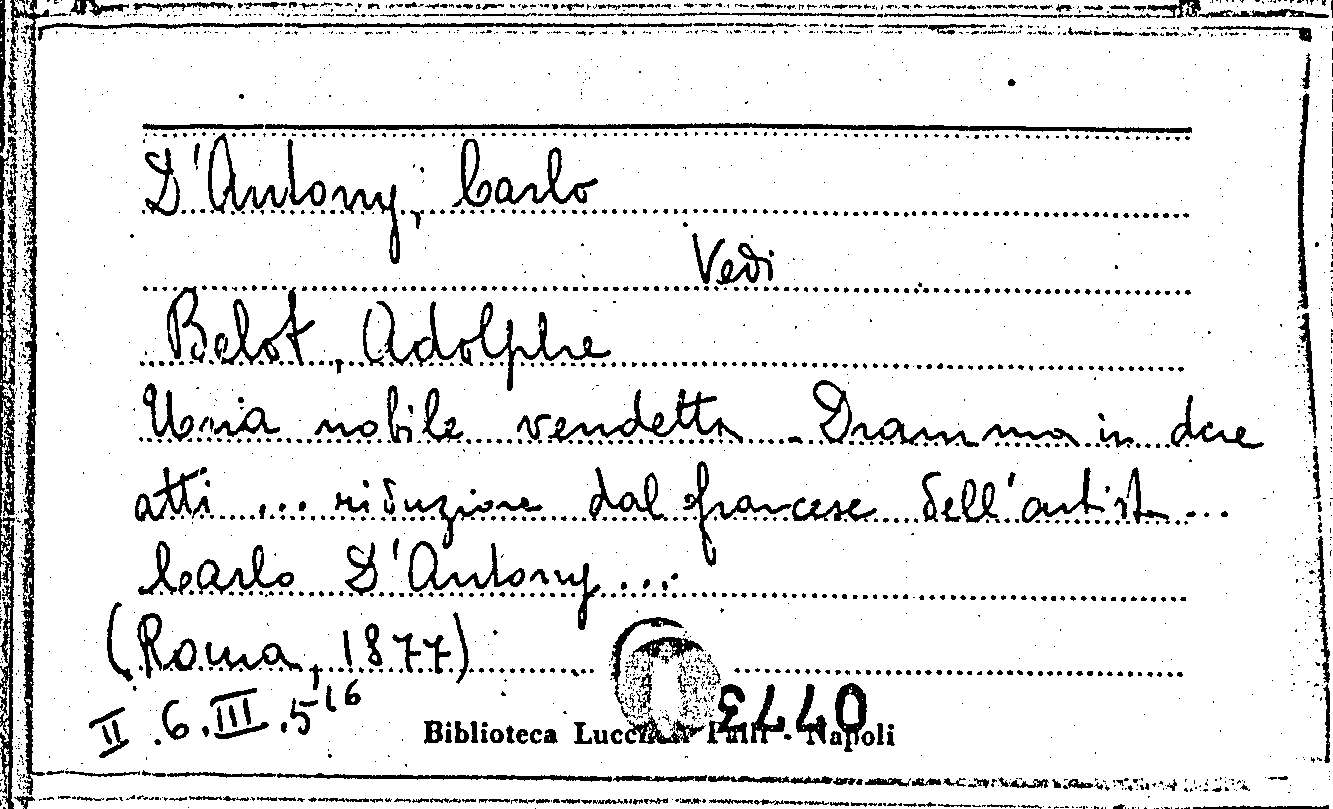 D'Antony, Carlo
Vedi
Belot, Adolphe
Una nobile vendetta. Dramma in due
atti ... riduzione dal francese dell'artista ...
Carlo D'Antony ...
(Roma, 1877)
II.6.III.5 16
Biblioteca Lucchesi Palli - Napoli